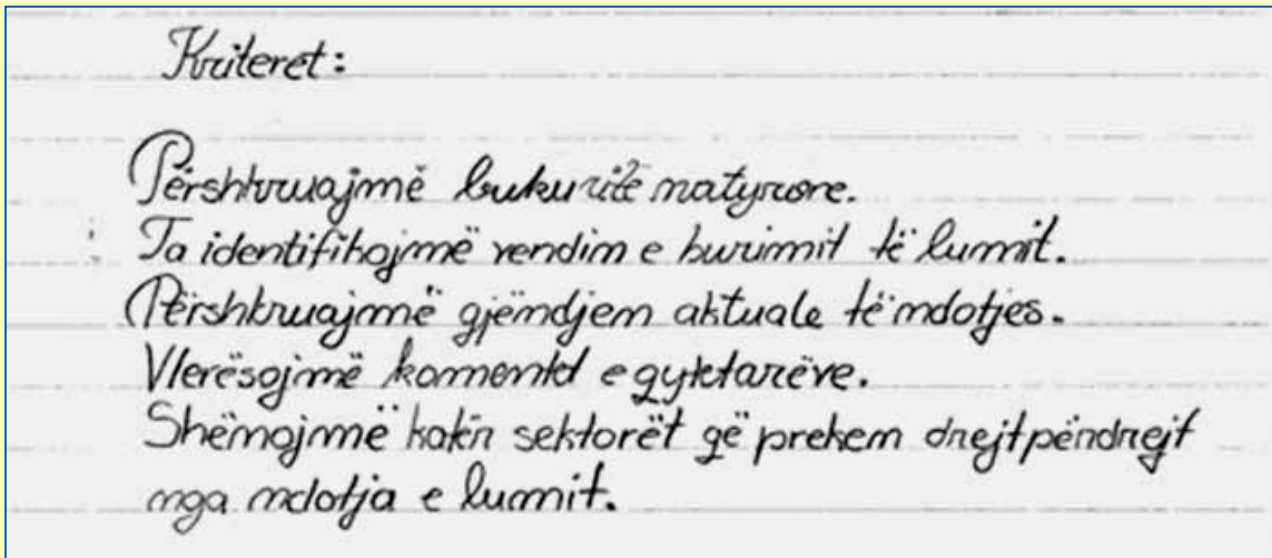 Kriteret:
Përshkruajmë bukuritë natyrore.
Ta identifikojmë vendin e burimit të lumit.
Përshkruajmë gjëndjen aktuale të ndotjes.
Vlerësojmë komentet e qytetarëve.
Shënojmë katër sektorët që preken drejtpëndrejt
nga ndotja e lumit.